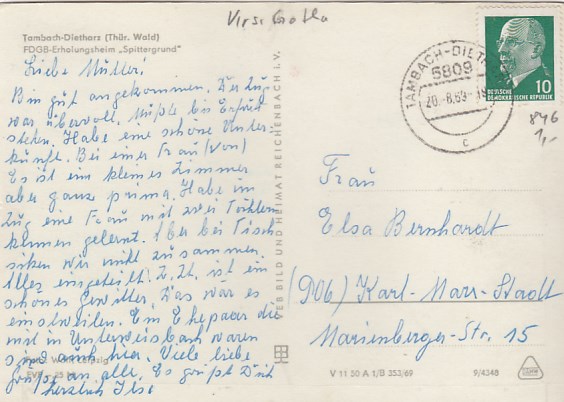 Kr Gotha
Tambach-Dietharz (Thür. Wald)
FDGB-Erholungsheim „Spittergrund"
Liebe Mutter!
Bin gut angekommen. Der Zug
war übervoll, mußte bis Erfurt
stehen. Habe eine schöne Unter-
kunft. Bei einer Frau (von)
Es ist ein kleines Zimmer
aber ganz prima. Habe im
Zug eine Frau mit zwei Töchtern
kennen gelernt. Aber bei Tisch
sitzen wir nicht zusammen.
Alles eingeteilt. Z. Zt. ist ein
schönes Gewitter. Das wär es
einstweilen. Ein Ehepaar die
mit in Unterweisbach waren
sind auch hier. Viele liebe
Grüße an alle. Es grüßt Dich
herzlich Ilse
Leipzig
VEB BILD UND HEIMAT REICHENBACH I. V.
TAMBACH-DIETHARZ
5809
20.-8.69
c
DEUTSCHE
DEMOKRATISCHE REPUBLIK
10
846
1,-
Frau
Elsa Bernhardt
(906) Karl-Marx-Stadt
Marienberger-Str. 15
V 11 50 A 1/B 353/69
9/4348